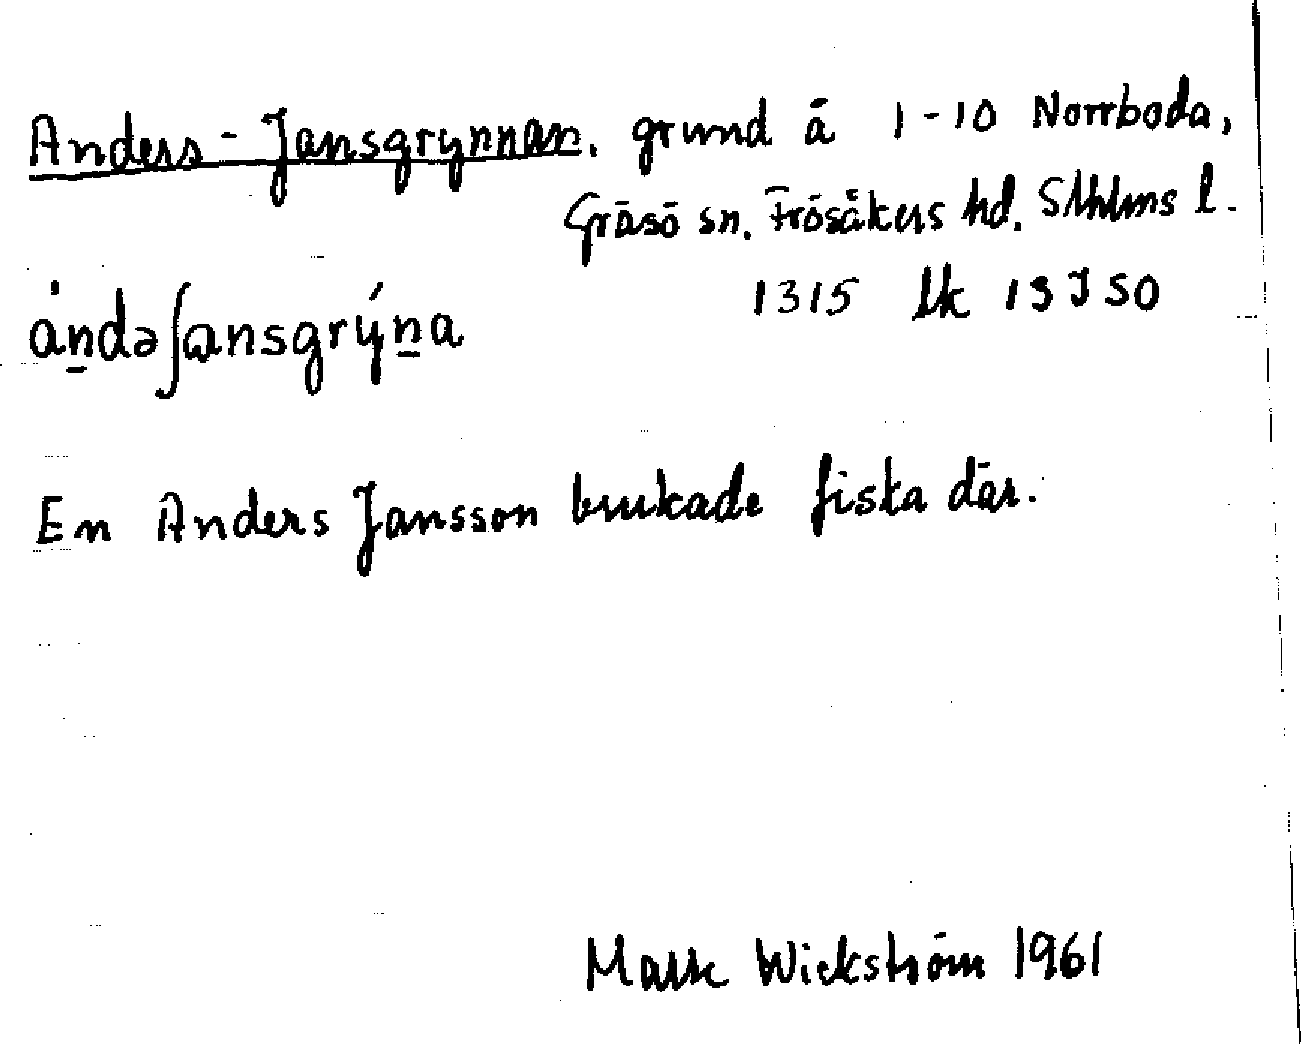 Anders-Jansgrynnan, grund å 1-10 Norrboda,
Gräsö sn. Frösåkers hd. Sthlms l.
1315 lk 13I SO
ȧṉdəʃansgrýṉa
En Anders Jansson brukade fiska där.
Wickström 1961